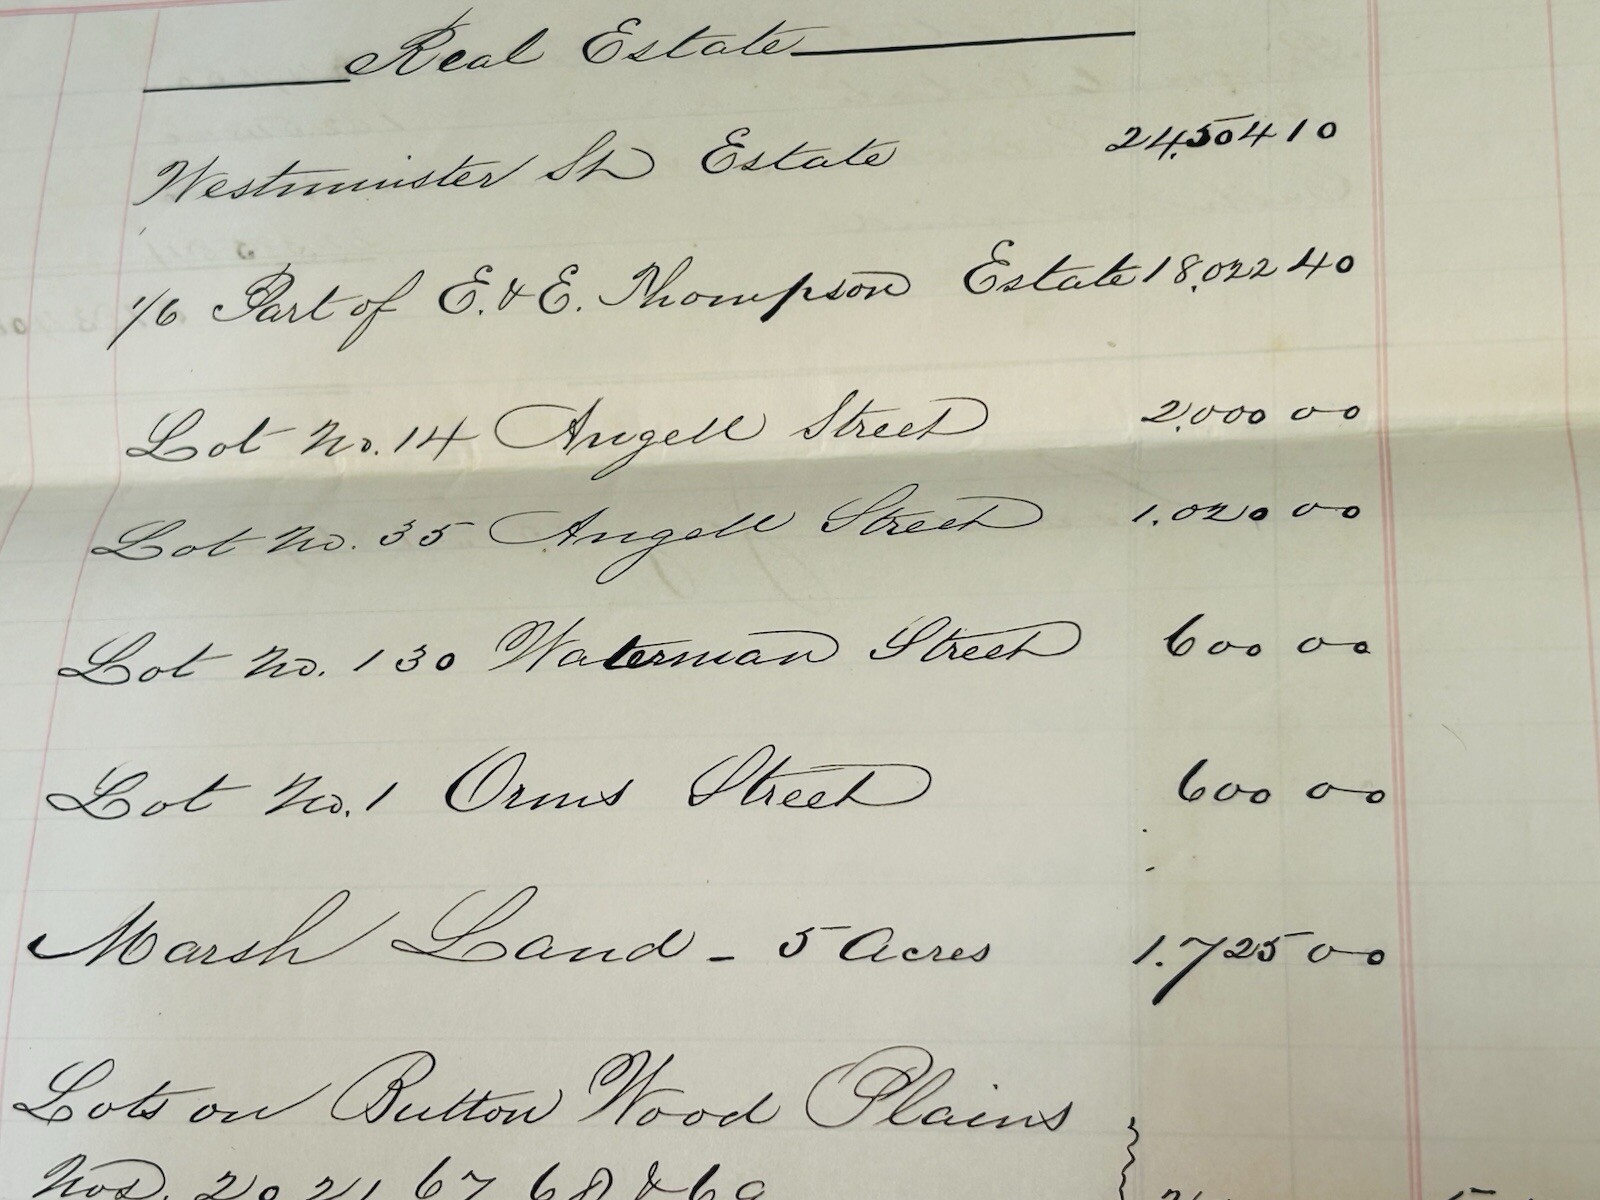 Real Estate
Westminster St Estate 24,504 10
1/6 Part of E. & E. Thompson Estate 18,022 40
Lot No. 14 Angell Street 2,000 00
Lot No. 35 Angell Street 1,020 00
Lot No. 130 Waterman Street 600 00
Lot No. 1 Orms Street 600 00
Marsh Land - 5 Acres 1,725 00
Lots on Button Wood Plains
Nos. 20 21 67 68 & 69